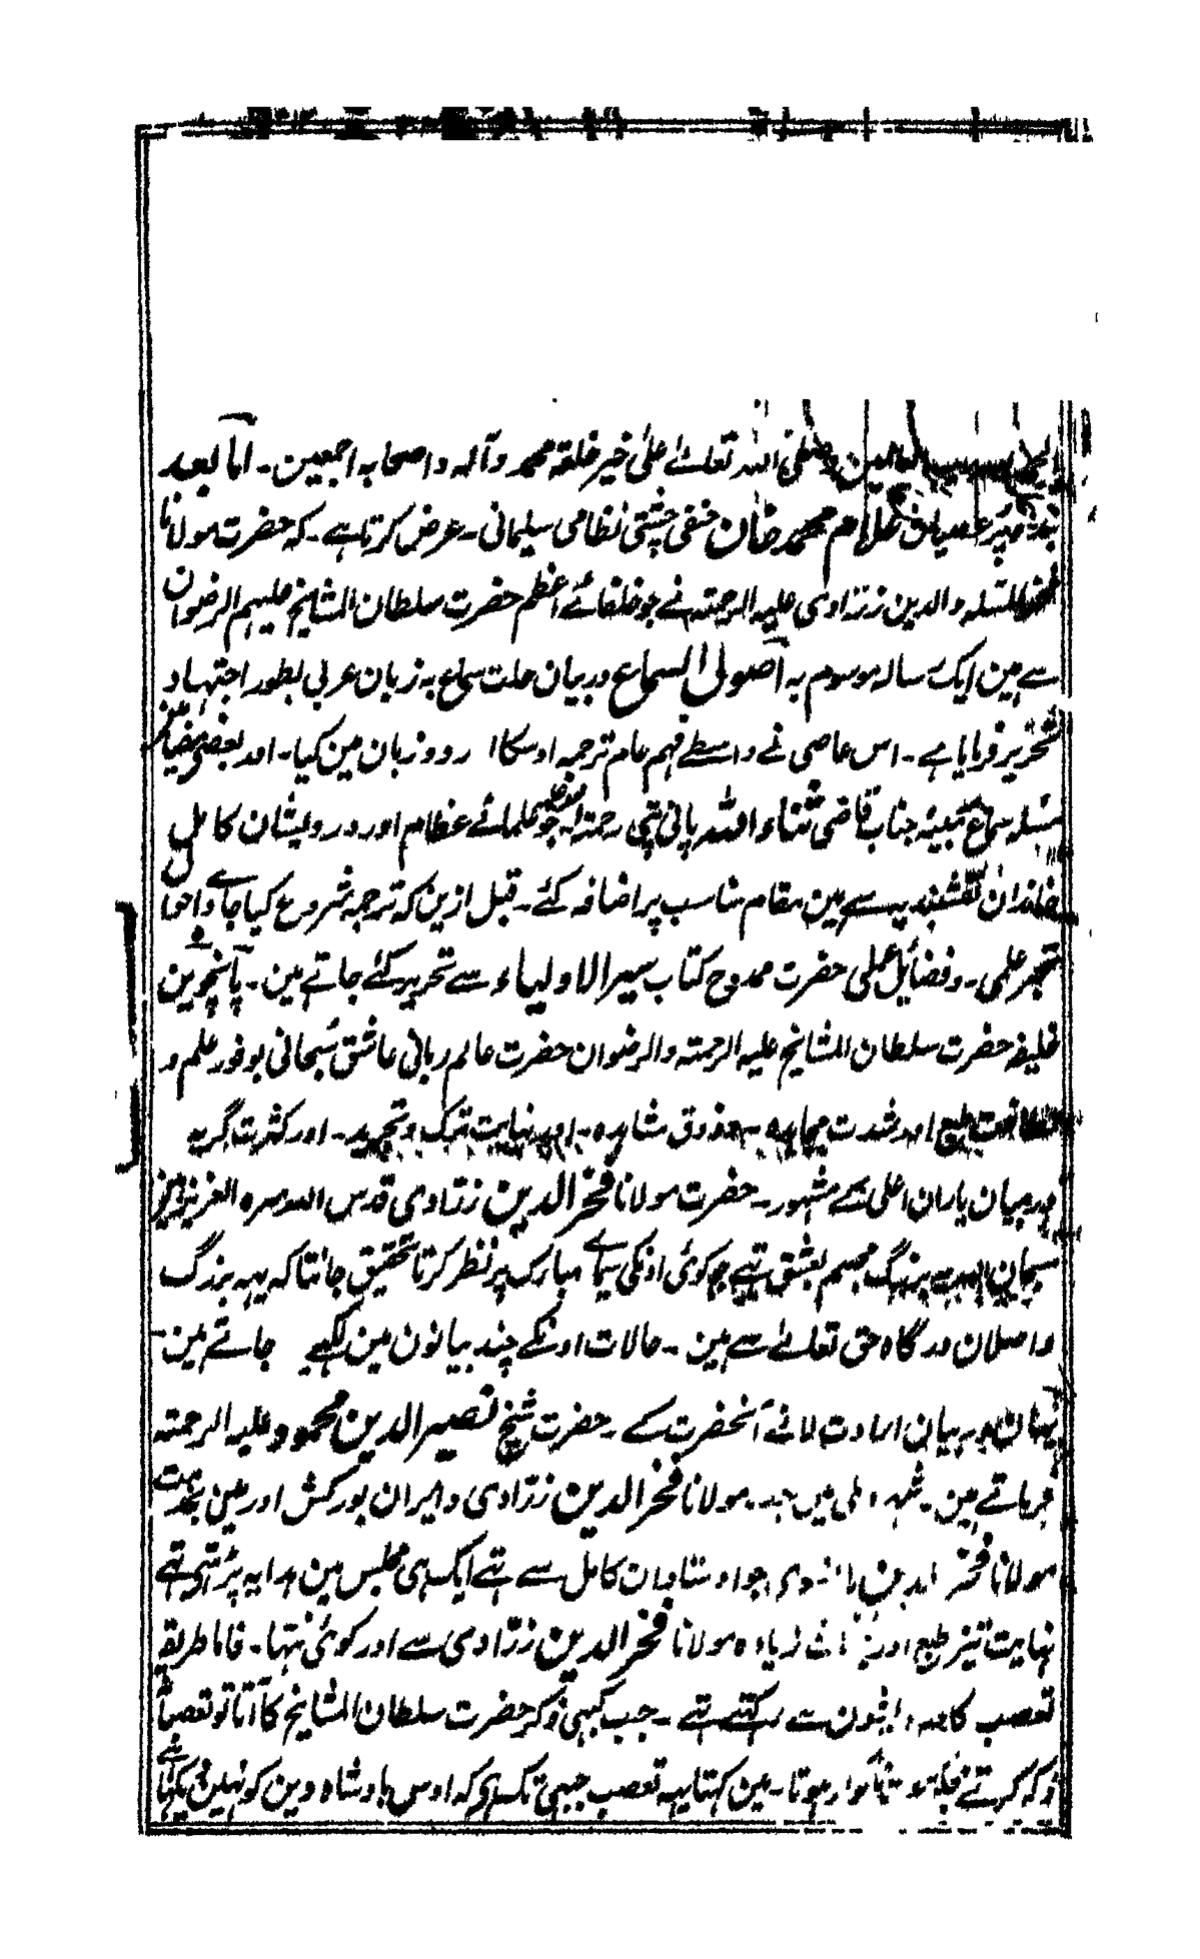 الحمد للہ رب العالمین وصلی اللہ تعالے علی خیر خلقہ محمد وآلہ واصحابہ اجمعین۔ اما بعد
بندہ پر عصیان غلام محمد خان حنفی چشتی نظامی سلیمانی۔ عرض کرتا ہے۔ کہ حضرت مولانا
فخر الملتہ والدین زرّاوی علیہ الرحمتہ نے جو خلفائے اعظم حضرت سلطان المشایخ علیہم الرضوان
سے ہین ایک رسالہ موسوم بہ اصول السماع در بیان حلت سماع بہ زبان عربی بطور اجتہاد
تحریر فرمایا ہے۔ اس عاصی نے واسطے فہم عام ترجمہ اوسکا اردو زبان مین کیا۔ اور بعضی مضامین
مسئلہ سماع جناب قاضی ثناء اللہ پانی پتی رحمتہ اللہ علیہ جو علمائے عظام اور درویشان کامل
خاندان نقشبندیہ سے ہین مقام مناسب پر اضافہ کئے۔ قبل ازین کہ ترجمہ شروع کیا جاے احوال
تبحر علمی۔ وفضایل عملی حضرت ممدوح کتاب سیر الاولیاء سے تحریر کئے جاتے ہین۔ پانچوین
خلیفہ حضرت سلطان المشایخ علیہ الرحمتہ والرضوان حضرت عالم ربانی عاشق سُبحانی بوفور علم و
لطافت طبع اور شدت مجاہدہ۔ ذوق مشاہدہ۔ اور نہایت ترک و تجرید۔ اور کثرت گریہ
درمیان یاران اعلی کے مشہور۔ حضرت مولانا فخر الدین زرّاوی قدس اللہ سرہ العزیز ہین
بزرگ مجسم بعشق تہے جو کوئی اونکی سیماے مبارک پر نظر کرتا تحقیق جانتا کہ یہہ بزرگ
واصلان درگاہ حق تعالے سے ہین۔ حالات اونکے چند بیانون مین لکہے جاتے ہین۔
بیان ارادت لانے آنحضرت کے۔ حضرت شیخ نصیر الدین محمود علیہ الرحمتہ
فرماتے ہین۔ شہر دہلی میں مولانا فخر الدین زرّاوی اور مین بخدمت
مولانا فخر الدین ہانسوی جو اوستادان کامل سے تہے ایک ہی مجلس مین ہدایہ پڑہتے تہے
نہایت تیز طبع اور زیادہ مولانا فخر الدین زرّاوی سے اور کوئی نتہا۔ فاما طریق
تعصب کا سے رکہتے تہے۔ جب کبہی ذکر حضرت سلطان المشایخ کا آتا تو تعصباً
ذکر کرتے ناگوار ہوتا۔ مین کہتا یہہ تعصب جبہی تک ہی کہ اوس بادشاہ دین کو نہین دیکہا